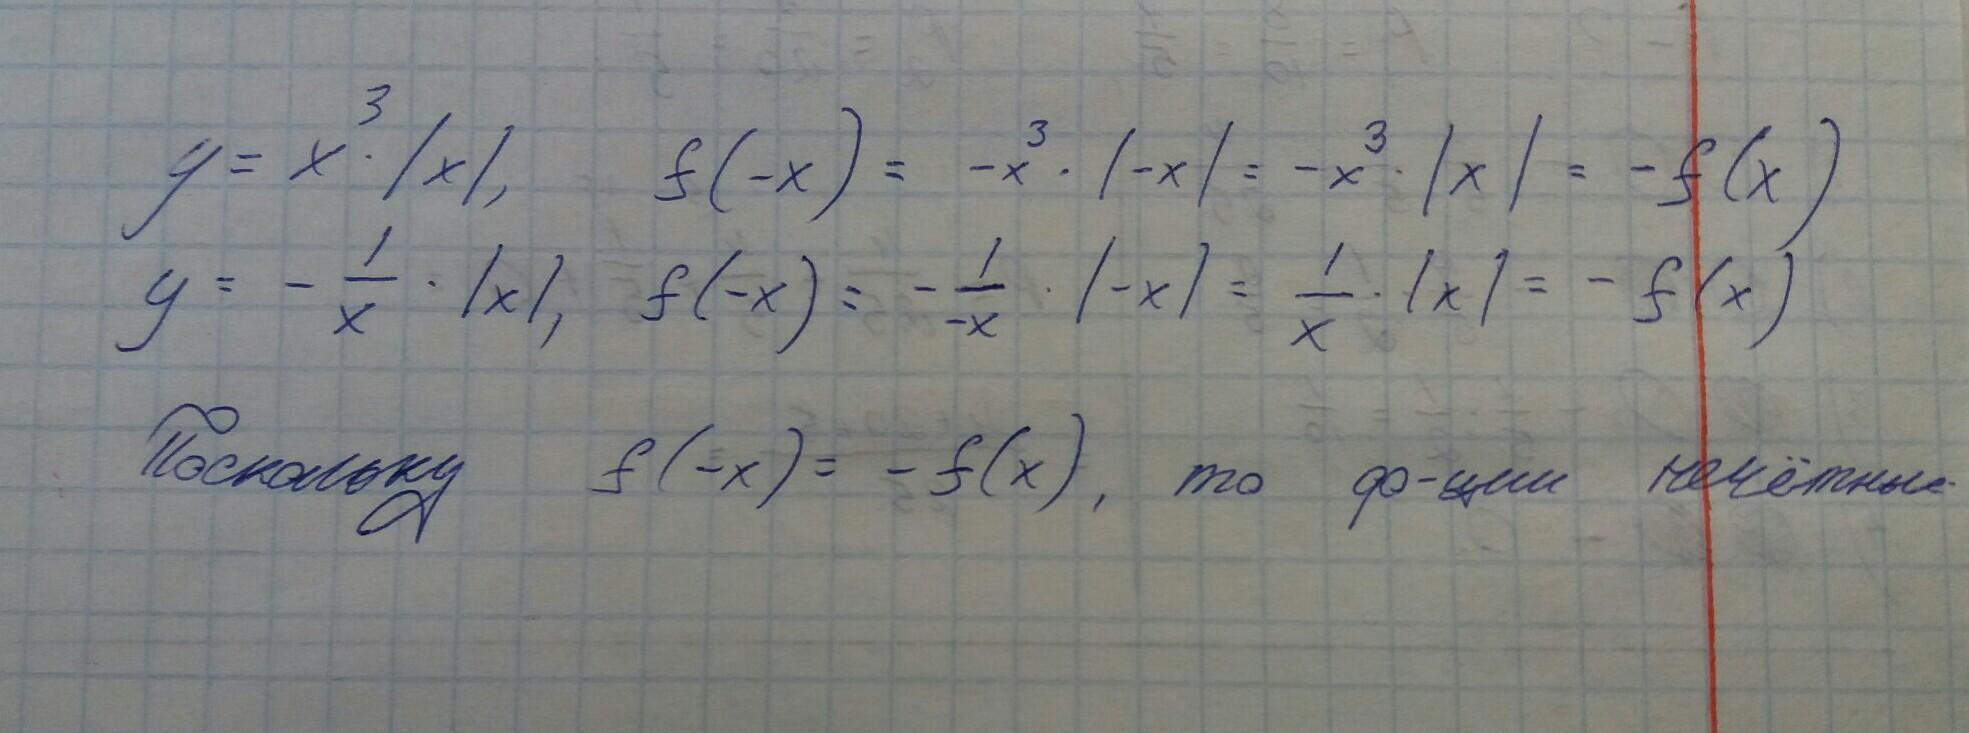 y = x³ · |x|, f(-x) = -x³ · |-x| = -x³ · |x| = -f(x)
y = - 1/x · |x|, f(-x) = - 1/-x · |-x| = 1/x · |x| = - f(x)
Поскольку f(-x) = -f(x), то ф-ции нечётные